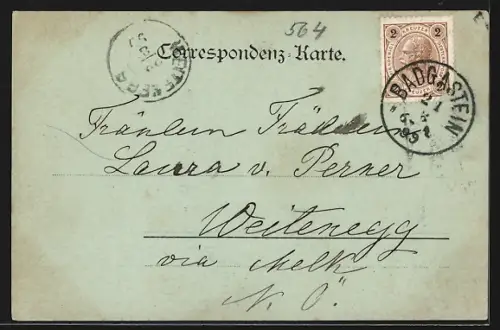 564
Correspondenz-Karte.
2 2
BADGASTEIN
Fräulein Fräulein
Laura v. Perner
Weitenegg
via Melk
N. Ö.